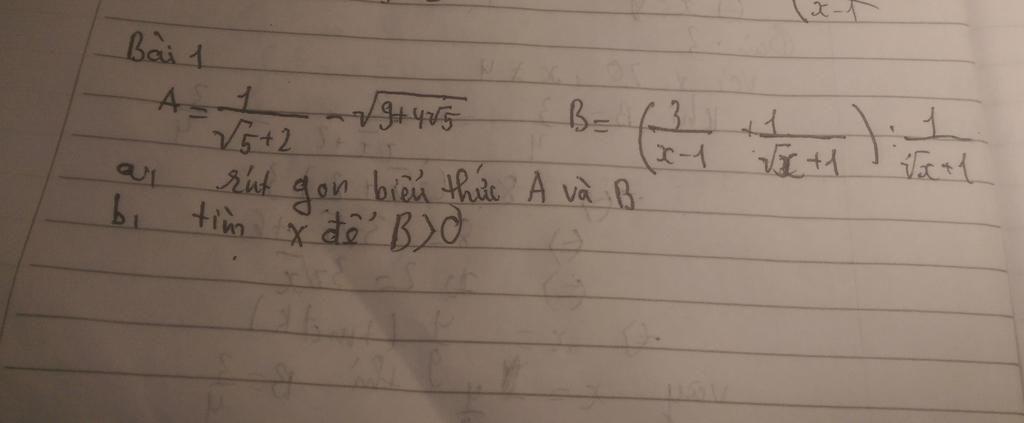 x-1
Bài 1
A = \frac{1}{\sqrt{5}+2} - \sqrt{9+4\sqrt{5}} B = \left(\frac{3}{x-1} + \frac{1}{\sqrt{x}+1}\right) : \frac{1}{\sqrt{x}+1}
a, rút gọn biểu thức A và B
b, tìm x để B>0